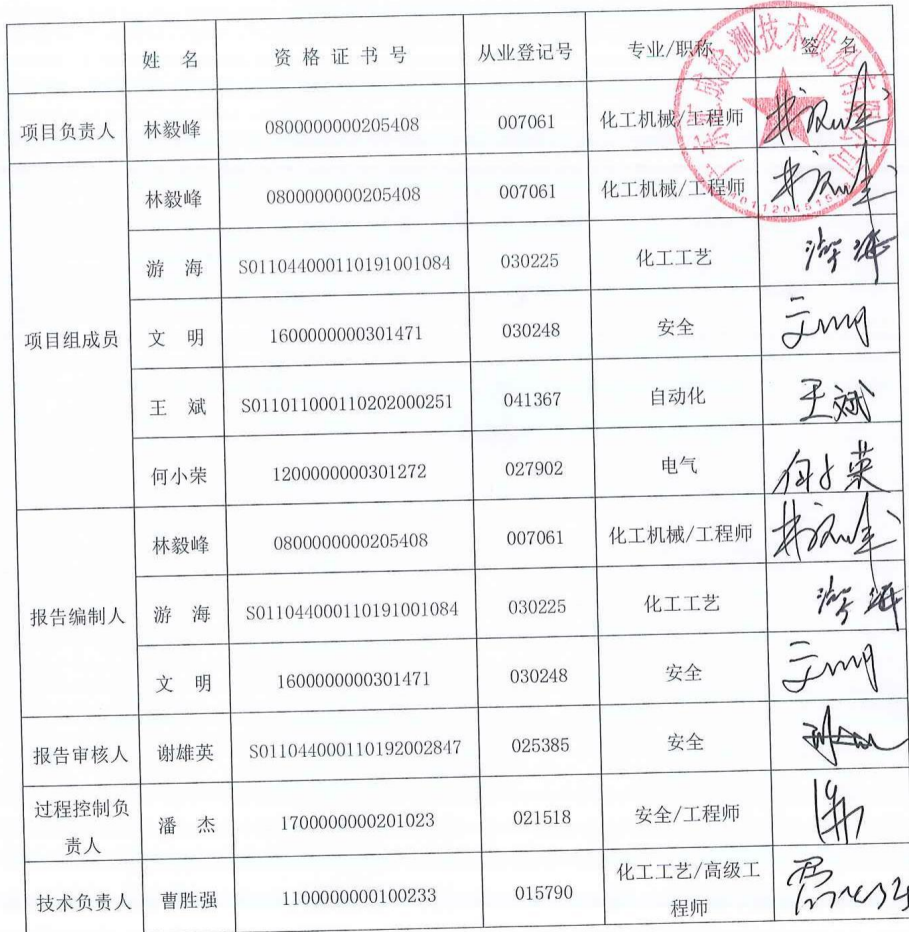 姓 名 资格证书号 从业登记号 专业/职称 签 名
项目负责人 林毅峰 0800000000205408 007061 化工机械/工程师
项目组成员 林毅峰 0800000000205408 007061 化工机械/工程师
游 海 S011044000110191001084 030225 化工工艺 游海
文 明 1600000000301471 030248 安全 文明
王 斌 S011011000110202000251 041367 自动化 王斌
何小荣 1200000000301272 027902 电气 何小荣
报告编制人 林毅峰 0800000000205408 007061 化工机械/工程师
游 海 S011044000110191001084 030225 化工工艺 游海
文 明 1600000000301471 030248 安全 文明
报告审核人 谢雄英 S011044000110192002847 025385 安全
过程控制负
责人 潘 杰 1700000000201023 021518 安全/工程师
技术负责人 曹胜强 1100000000100233 015790 化工工艺/高级工
程师